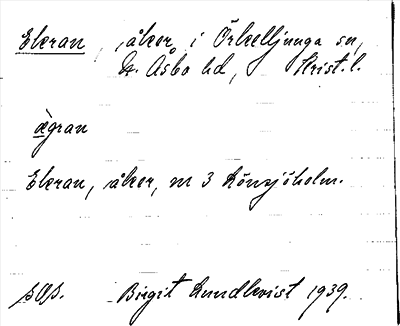 Ekran, åker i Örkelljunga sn,
N. Åsbo hd, Krist. l.
ä̀gran
Ekran, åker, m 3 Lönsjöholm.
sOp. Birgit Lundkvist 1939.